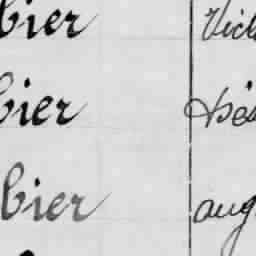 bier Vic
bier Dés
bier aug